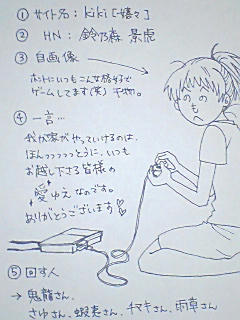 ① サイト名：kiki[-嬉々]
② HN：鈴乃森 景虎
③ 自画像
ホントにいつもこんな格好で
ゲームしてます(笑) 干物。
④ 一言…
我が家がやっていけるのは、
ほんっっっっっとうに、いつも
お越し下さる皆様の
愛ゆえなのです。
ありがとうございます♡
⑤ 回す人
→ 鬼龍さん、
さゆさん、蝦老さん、チマキさん、雨草さん